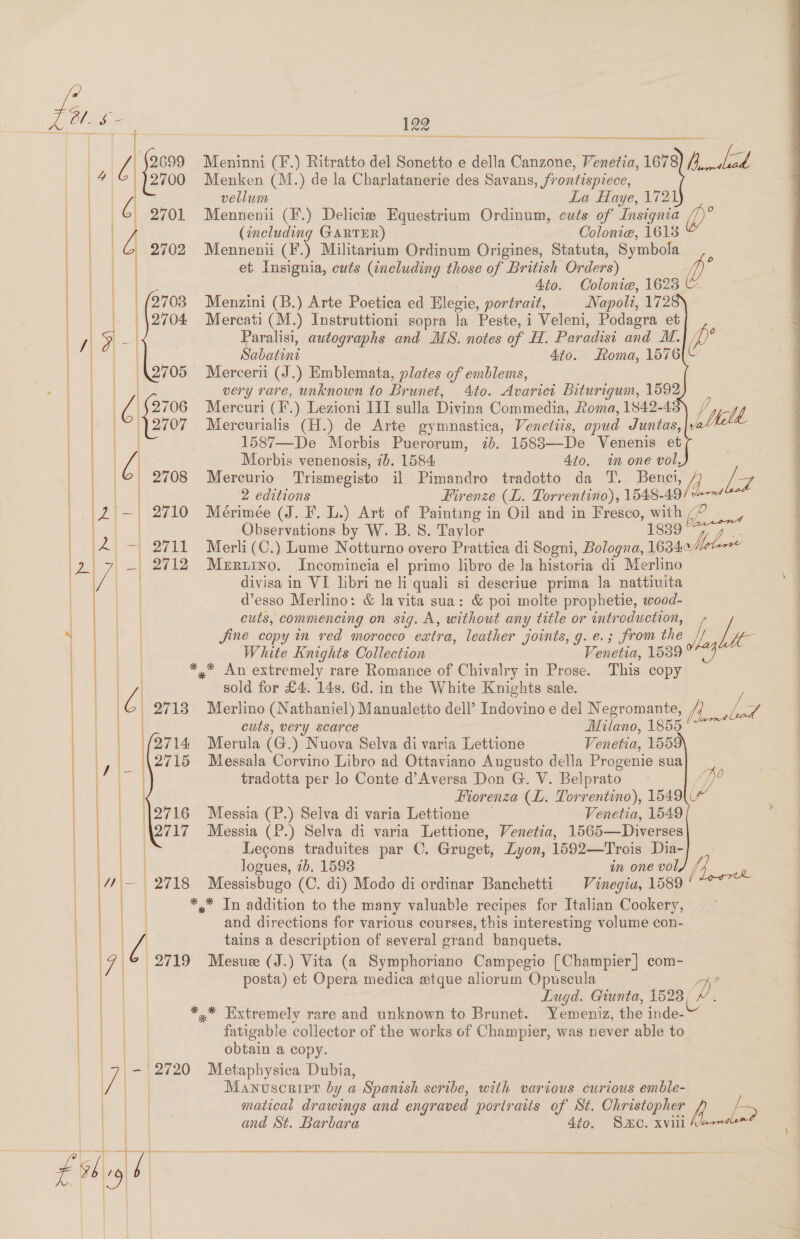 £21. 5 -
122
4 6 2699 Meninni (F.) Ritratto del Sonetto e della Canzone, Venetia, 1678
2700 Menken (M.) de la Charlatanerie des Savans, frontispiece,
vellum La Haye, 1721
6 2701 Mennenii (F.) Deliciæ Equestrium Ordinum, cuts of Insignia
(including GARTER) Coloniæ, 1613
6 2702 Mennenii (F.) Militarium Ordinum Origines, Statuta, Symbola
et Insignia, cuts (including those of British Orders)
4to. Coloniæ, 1623
2703 Menzini (B.) Arte Poetica ed Elegie, portrait, Napoli, 1728
2704 Mercati (M.) Instruttioni sopra la Peste, i Veleni, Podagra et
Paralisi, autographs and MS. notes of H. Paradisi and M.
Sabatini 4to. Roma, 1576
2705 Mercerii (J.) Emblemata, plates of emblems,
very rare, unknown to Brunet, 4to. Avarici Biturigum, 1592
6 2706 Mercuri (F.) Lezioni III sulla Divina Commedia, Roma, 1842-43
2707 Mercurialis (H.) de Arte gymnastica, Venetiis, apud Juntas,
1587—De Morbis Puerorum, ib. 1583—De Venenis et
Morbis venenosis, ib. 1584 4to. in one vol.
6 2708 Mercurio Trismegisto il Pimandro tradotto da T. Benci,
2 editions Firenze (L. Torrentino), 1548-49
2 - 2710 Mérimée (J. F. L.) Art of Painting in Oil and in Fresco, with
Observations by W. B. S. Taylor 1839
2 - 2711 Merli (C.) Lume Notturno overo Prattica di Sogni, Bologna, 1634
2 7 - 2712 MERLINO. Incomincia el primo libro de la historia di Merlino
divisa in VI libri ne li quali si descriue prima la nattiuita
d'esso Merlino: & la vita sua: & poi molte prophetie, wood-
cuts, commencing on sig. A, without any title or introduction,
fine copy in red morocco extra, leather joints, g. e.; from the
White Knights Collection Venetia, 1539 Hazlitt
*** An extremely rare Romance of Chivalry in Prose. This copy
sold for £4. 14s. 6d. in the White Knights sale.
6 2713 Merlino (Nathaniel) Manualetto dell' Indovino e del Negromante,
cuts, very scarce Milano, 1855
2714 Merula (G.) Nuova Selva di varia Lettione Venetia, 1559
2715 Messala Corvino Libro ad Ottaviano Augusto della Progenie sua
tradotta per lo Conte d'Aversa Don G. V. Belprato
Fiorenza (L. Torrentino), 1549
2716 Messia (P.) Selva di varia Lettione Venetia, 1549
2717 Messia (P.) Selva di varia Lettione, Venetia, 1565—Diverses
Leçons traduites par C. Gruget, Lyon, 1592—Trois Dia-
logues, ib. 1593 in one vol.
11 - 2718 Messisbugo (C. di) Modo di ordinar Banchetti Vinegia, 1589
*** In addition to the many valuable recipes for Italian Cookery,
and directions for various courses, this interesting volume con-
tains a description of several grand banquets.
9 6 2719 Mesue (J.) Vita (a Symphoriano Campegio [Champier] com-
posta) et Opera medica ætque aliorum Opuscula
Lugd. Giunta, 1523
*** Extremely rare and unknown to Brunet. Yemeniz, the inde-
fatigable collector of the works of Champier, was never able to
obtain a copy.
7 - 2720 Metaphysica Dubia,
MANUSCRIPT by a Spanish scribe, with various curious emble-
matical drawings and engraved portraits of St. Christopher
and St. Barbara 4to. SÆC. xviii